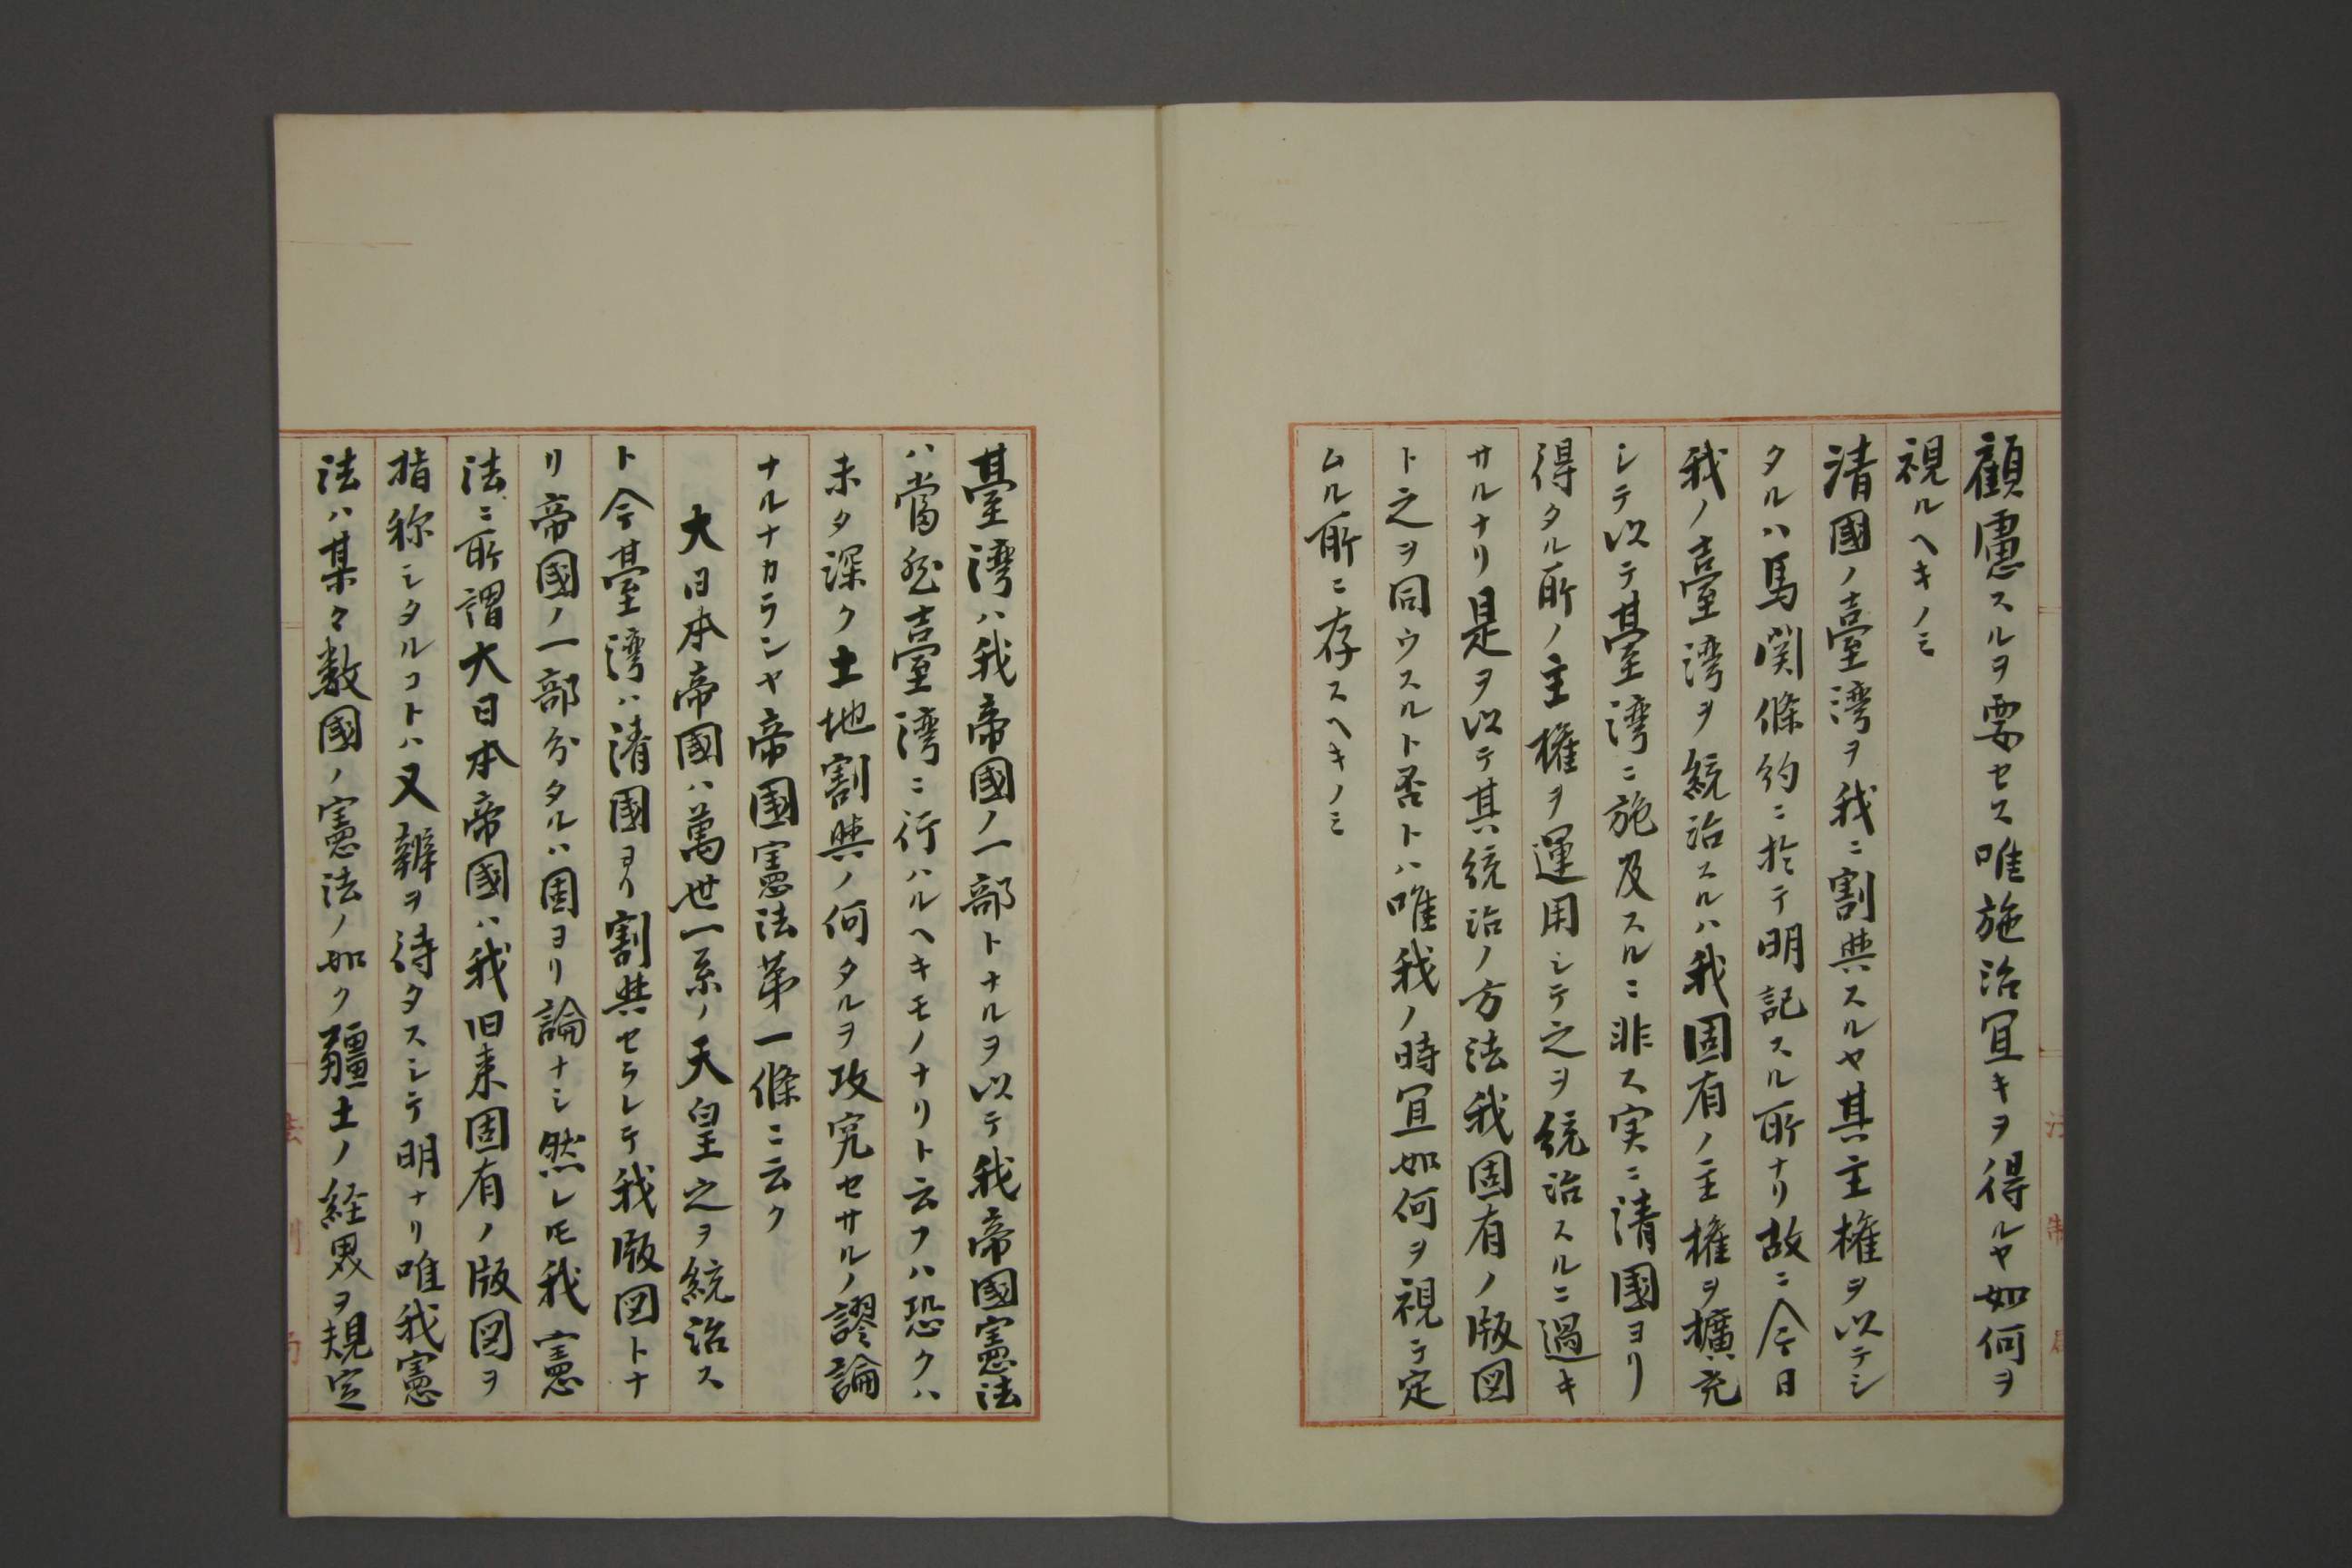 顧慮スルヲ要セス唯施治宜キヲ得ルヤ如何ヲ
視ルヘキノミ
清國ノ臺湾ヲ我ニ割與スルヤ其主權ヲ以テシ
タルハ馬関條約ニ於テ明記スル所ナリ故ニ今日
我ノ臺湾ヲ統治スルハ我固有ノ主權ヲ擴充
シテ以テ臺湾ニ施及スルニ非ス実ニ清國ヨリ
得タル所ノ主權ヲ運用シテ之ヲ統治スルニ過キ
サルナリ是ヲ以テ其統治ノ方法我固有ノ版図
ト之ヲ同ウスルト否トハ唯我ノ時宜如何ヲ視テ定
ムル所ニ存スヘキノミ
法制局
臺湾ハ我帝國ノ一部トナルヲ以テ我帝國憲法
ハ當然臺湾ニ行ハルヘキモノナリト云フハ恐クハ
未タ深ク土地割與ノ何タルヲ攻究セサルノ謬論
ナルナカランヤ帝國憲法第一條ニ云ク
大日本帝國ハ萬世一系ノ天皇之ヲ統治ス
ト今臺湾ハ清國ヨリ割與セラレテ我版図トナ
リ帝國ノ一部分タルハ固ヨリ論ナシ然レ𪜈我憲
法ニ所謂大日本帝國ハ我旧来固有ノ版図ヲ
指称シタルコトハ又辨ヲ待タスシテ明ナリ唯我憲
法ハ某々数國ノ憲法ノ如ク疆土ノ経界ヲ規定
法制局